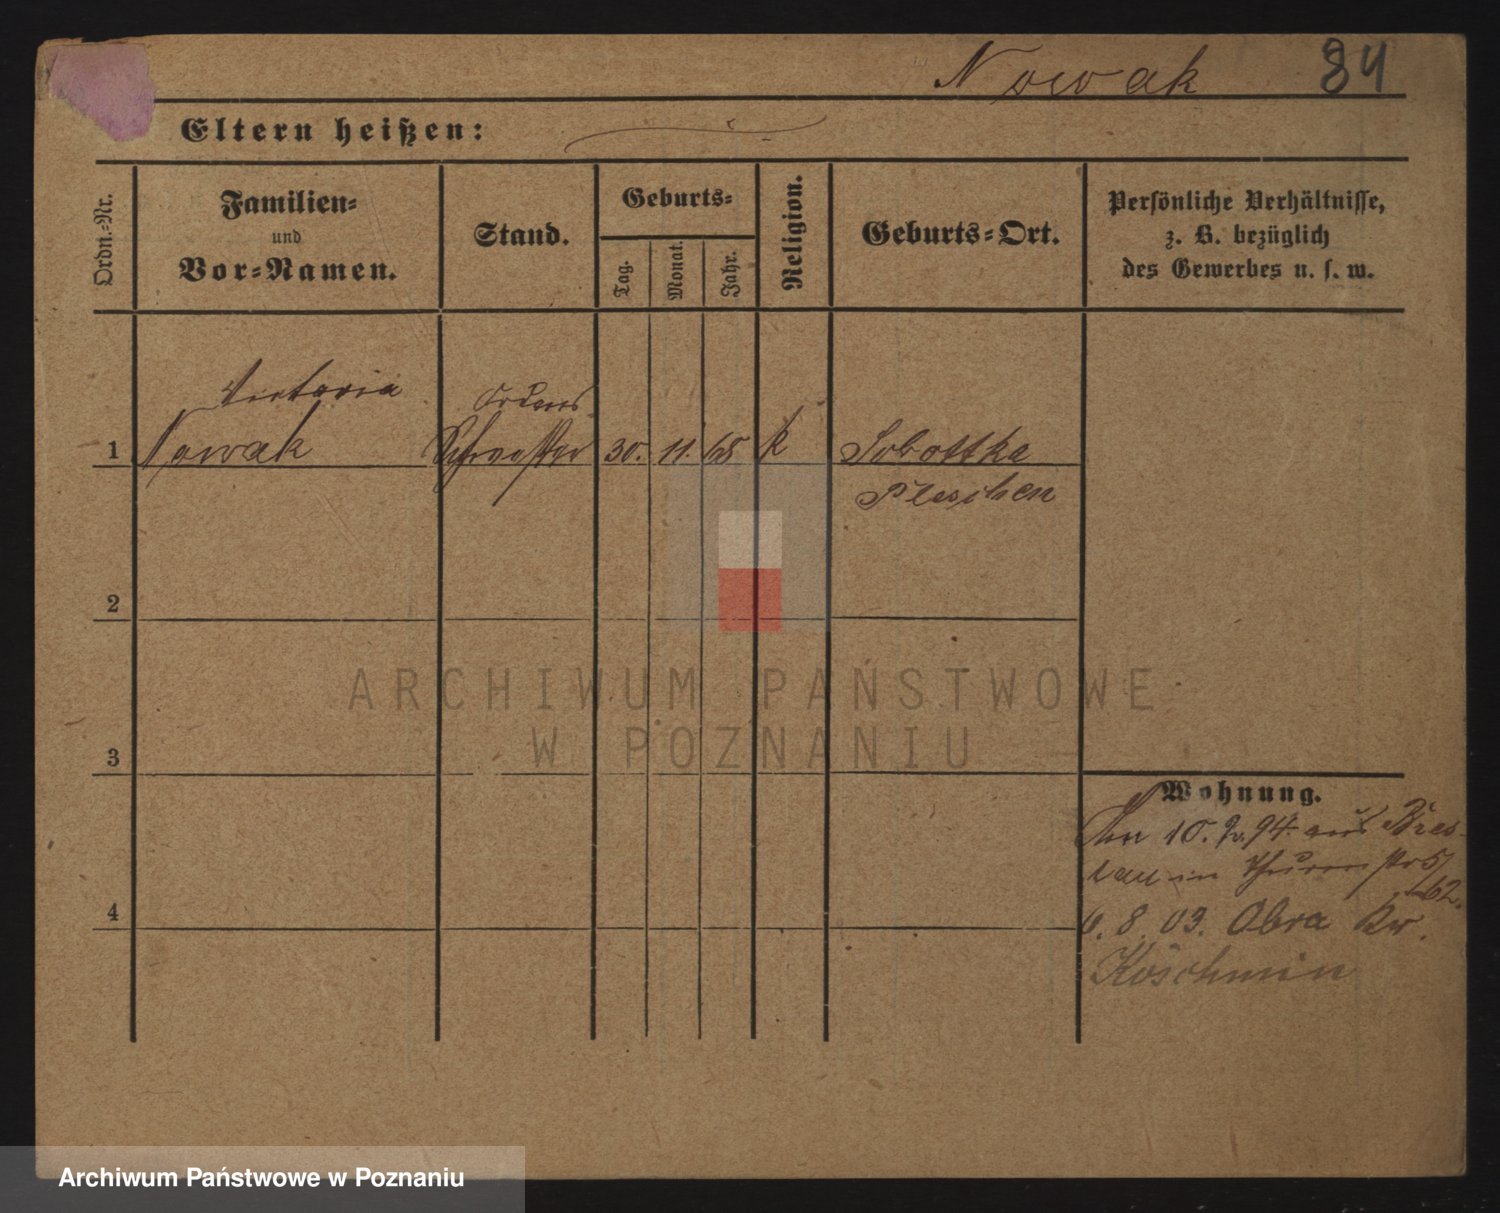 Nowak 84
Eltern heißen:
Ordn.-Nr.
Familien-
und
Vor-Namen.
Stand.
Geburts-
Tag.
Monat.
Jahr.
Religion.
Geburts-Ort.
Persönliche Verhältnisse,
z. B. bezüglich
des Gewerbes u. s. w.
Victoria
Ordens
1 Nowak Schwester 30. 11. 65 k Sobottka
Pleschen
2
3
4
Wohnung.
10. 9. 94. aus Bres-
lau in Thurmstr 5/
62.
6. 8. 03. Obra Kr.
Koschmin
ARCHIWUM PAŃSTWOWE
W POZNANIU
Archiwum Państwowe w Poznaniu